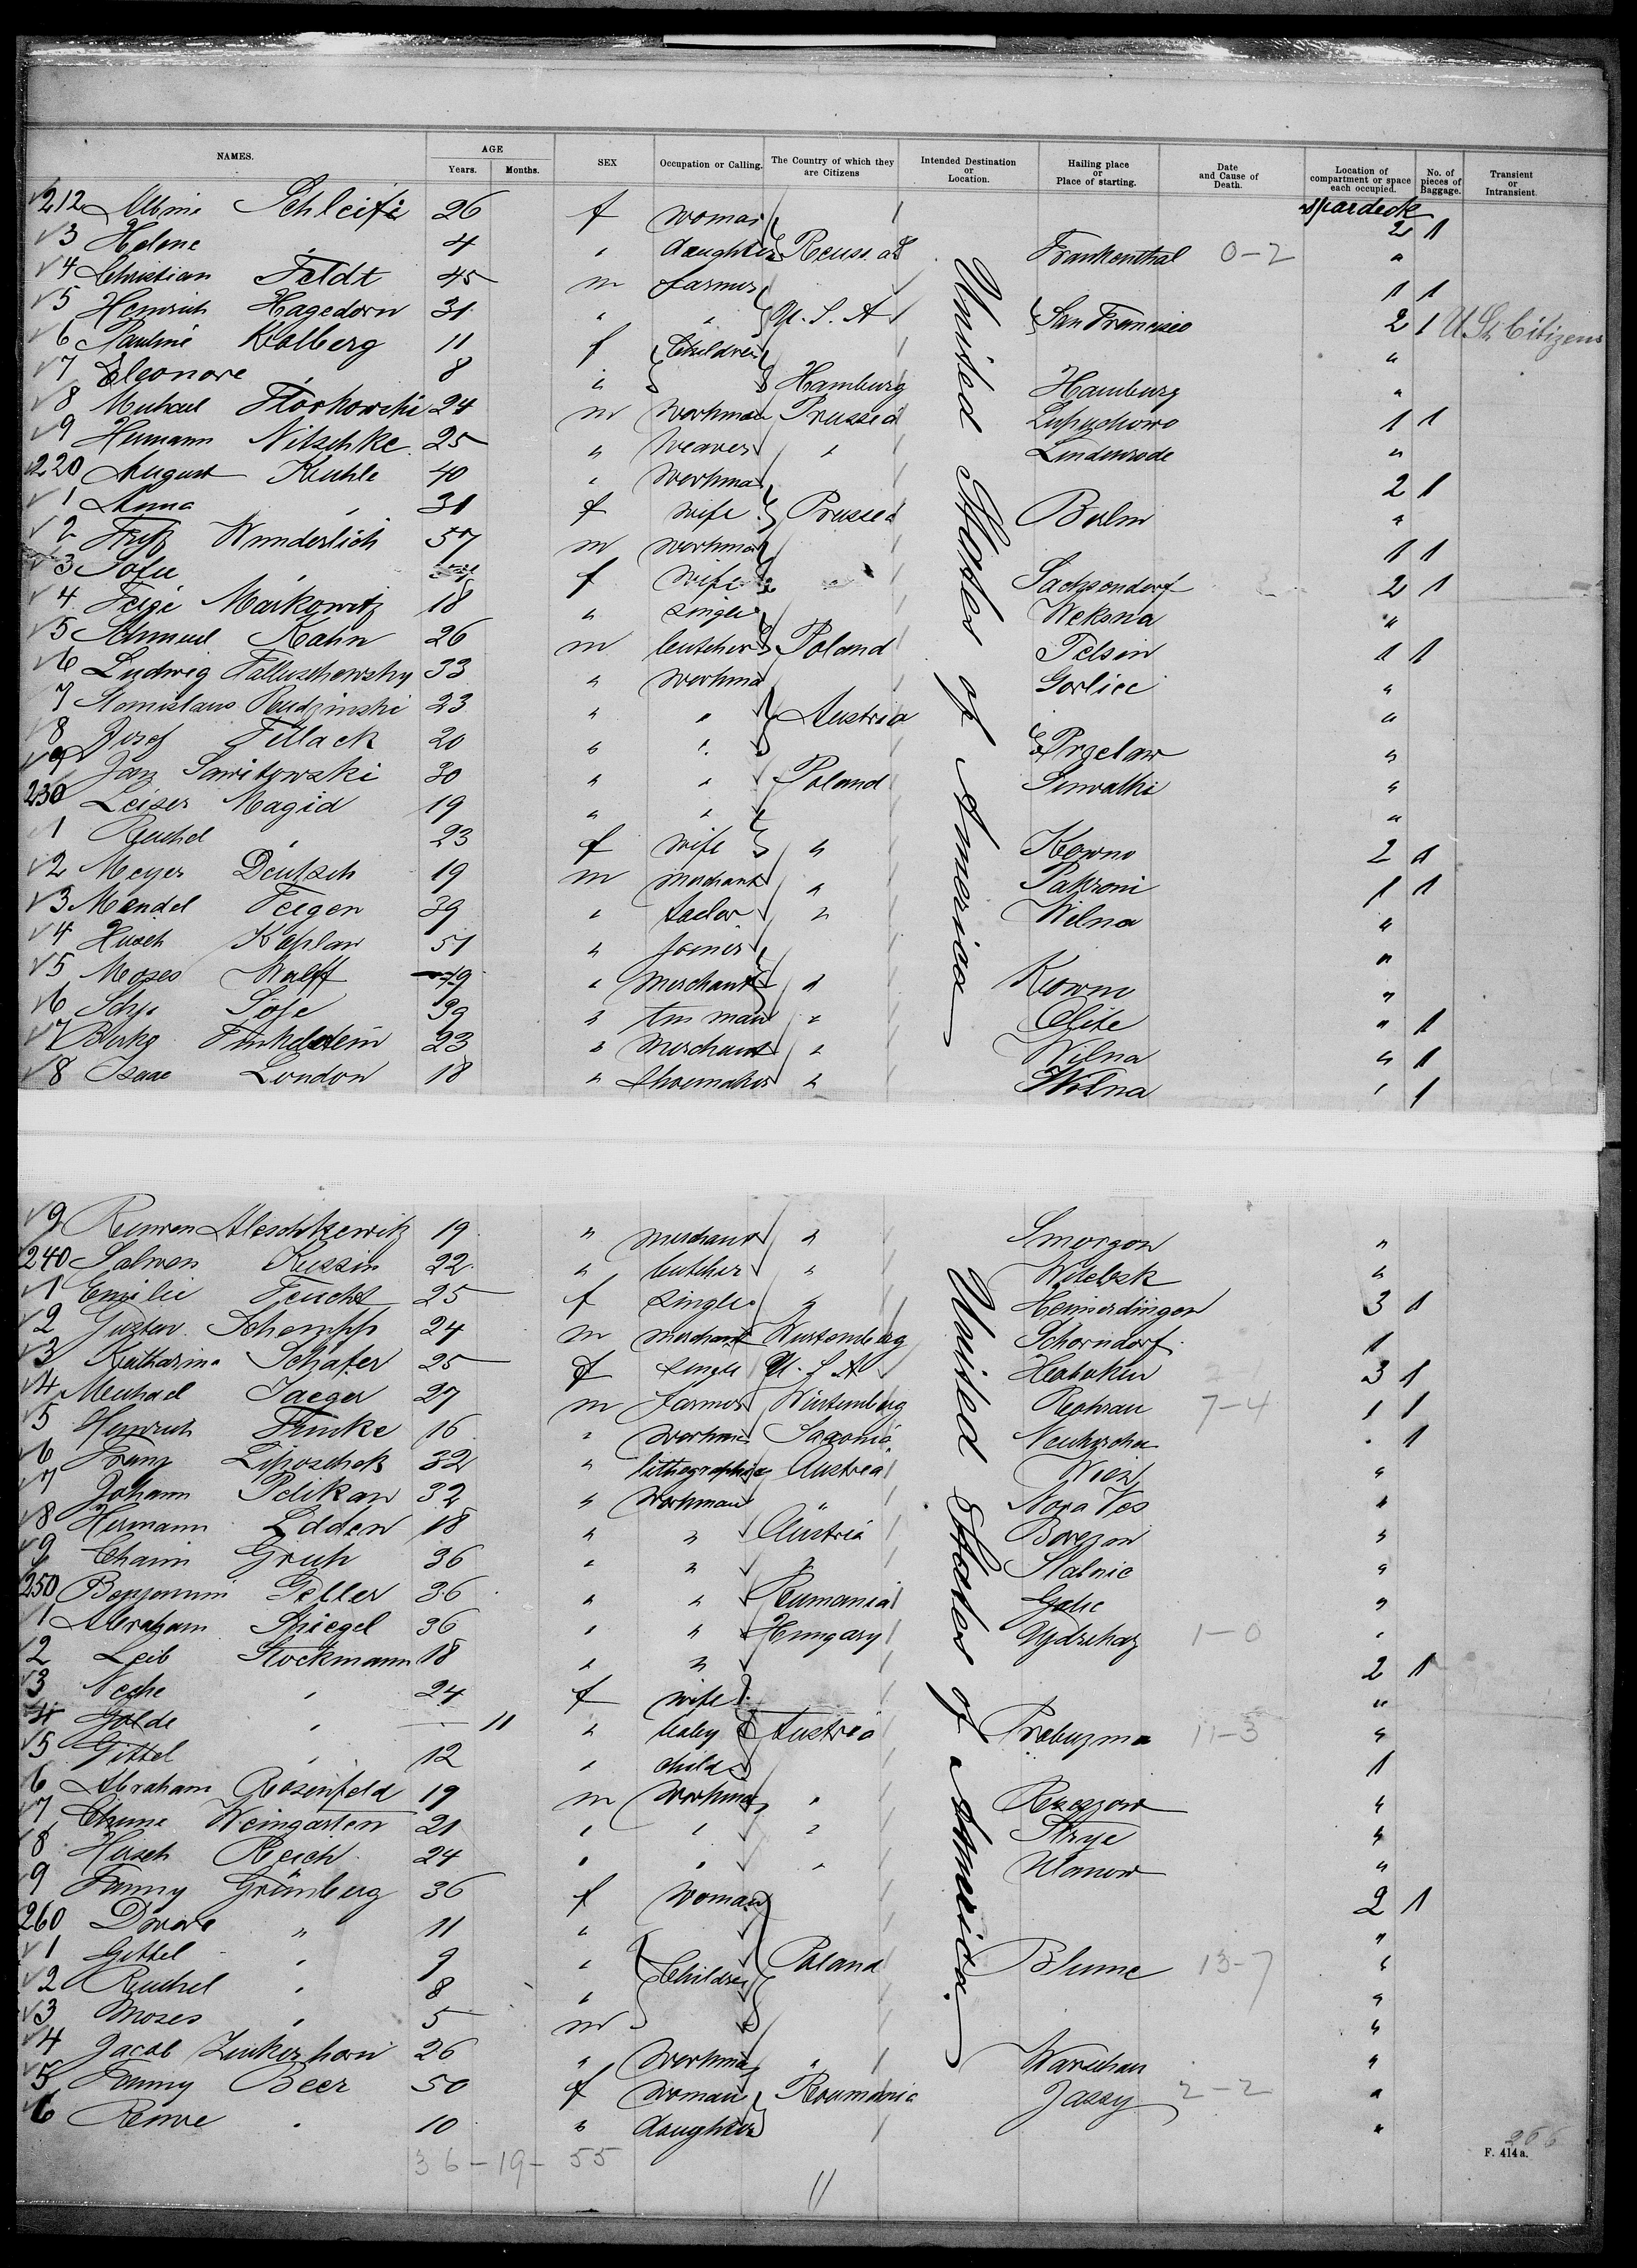 NAMES. AGE Years. Months. SEX Occupation or Calling. The Country of which they are Citizens Intended Destination or Location. Hailing place or Place of starting. Date and Cause of Death. Location of compartment or space each occupied. No. of pieces of Baggage. Transient or Intransient.
212 Albine Schleife 26 f woman spardeck 2 1
3 Helene " 4 " daughter Reuss Frankenthal 0-2 "
4 Christian Feldt 45 m farmer 1 1
5 Heinrich Hagedorn 31 " " U.S.A San Francisco 2 1 U St. Citizens
6 Pauline Kolberg 11 f Children "
7 Eleonore " 8 " Hamburg Hamburg "
8 Michael Florkowski 24 m workman Prussia 1 1
9 Hermann Nitschke 25 " weaver " Lindenrode "
220 August Kuhle 40 " workman 2 1
1 Anna " 31 f wife Prussia Berlin "
2 Fritz Wunderlich 57 m workman 1 1
3 Sofie " f wife " Sachsendorf 2 1
4 Feige Markowitz 18 " single Weksna "
5 Schmuel Kahn 26 m butcher Poland Telsin 1 1
6 Ludwig Falluschewsky 33 " workman Gorlice "
7 Stanislaus Rudzinski 23 " " Austria "
8 Josef Fillack 20 " " Przclaw "
9 Jan Sawitowski 30 " " Poland Suwalki "
230 Leiser Magid 19 " " "
1 Rachel " 23 f wife " Kowno 2 1
2 Meyer Deutsch 19 m merchant " Pakroni 1 1
3 Mendel Feigen 39 " tailor " Wilna "
4 Hirsch Kaplan 51 " joiner "
5 Moses Wolff 19 " merchant " Kowno "
6 39 " tin man " Olite " 1
7 Finkelstein 23 " merchant " Wilna " 1
8 Isaac London 18 " shoemaker " Wilna " 1
United States of America
9 Reuwen Aleschkewitz 19 " merchant " Smorgon "
240 Salmen Kussin 22 " butcher " Witebsk "
1 Emilie Feucht 25 f single " Heimerdingen 3 1
2 Gustav Schempp 24 m merchant Wurtemberg Schorndorf 1
3 Katharina Schäfer 25 f single U.S.A Hoboken 2-1 3 1
4 Michael Jaeger 27 m farmer Würtemberg Rohrau 7-4 1 1
5 Heinrich Funke 16 " workman Saxonia " 1
6 Franz Liposchek 32 " lithographer Austria Wien "
7 Johann Pelikan 32 " workman " Nova Ves "
8 Hermann Edden 18 " " Austria "
9 Chaim Grup 36 " " " "
250 Benjamin Geller 36 " " Rumania Galic "
1 Abraham Spiegel 36 " " Hungary 1-0 "
2 Leib Stockmann 18 " " 2 1
3 " 24 f wife "
4 Golde " 11 " baby Austria Probuzma 11-3 "
5 Gittel " 12 " child 1
6 Abraham Rosenfeld 19 m workman " Rzeszow "
7 Weingarten 21 " " " Strye "
8 Hirsch Reich 24 " " " Ulanow "
9 Fanny Grünberg 36 f woman 2 1
260 " 11 " "
1 Gittel " 9 " Children Poland Blume 13-7 "
2 Rachel " 8 " "
3 Moses " 5 m "
4 Jacob Zuckerhorn 26 " workman " Warschau "
5 Fanny Beer 50 f woman Roumania Jassy 2-2 "
6 " 10 " daughter "
United States of America.
36-19-55
266
F. 414a.
11